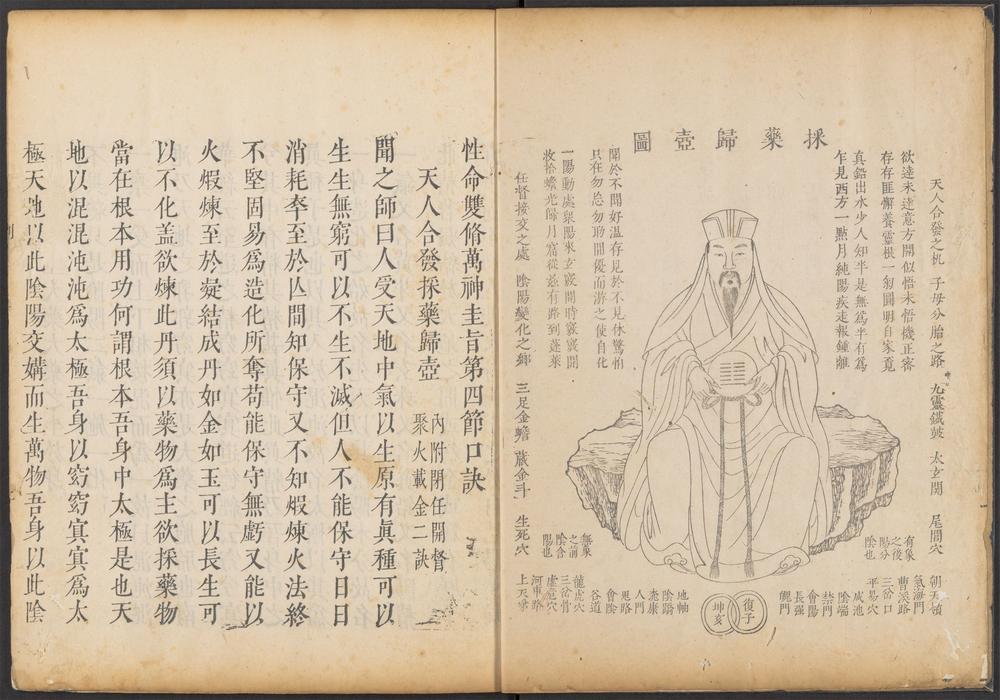 採藥歸壺圖
天人合發之机 子母分胎之路 九靈鐵皷 太玄関 尾閭穴
欲達未達意方開似悟未悟機正密
存存匪懈養靈根一匊圓明自家覓
真鉛出水少人知半是無爲半有爲
乍見西方一點月純陽疾走報鍾離
聞於不聞好溫存見於不見休驚怕
只在勿忘勿助間優而游之使自化
一陽動處衆陽來玄竅開時竅竅開
收拾蟾光歸月窟從茲有路到蓬萊
任督接交之處 陰陽變化之鄉 三足金蟾 藏金斗 生死穴
有象
之後
陽分
陰也
朝天嶺
氣海門
曹溪路
三岔口
平易穴
咸池
陰端
禁門
會陽
長强
魄門
復子
坤亥
地軸
陰蹻
㐬康
人門
鬼路
會陰
谷道
龍虎穴
三岔骨
虛危穴
河車路
上天梯
無象
之前
陰含
陽也
性命雙脩萬神圭旨第四節口訣
天人合發採藥歸壺
內附閉任開督
聚火載金二訣
聞之師曰人受天地中氣以生原有眞種可以
生生無窮可以不生不滅但人不能保守日日
消耗卒至於亾間知保守又不知煆煉火法終
不堅固易爲造化所奪苟能保守無虧又能以
火煆煉至於凝結成丹如金如玉可以長生可
以不化盖欲煉此丹須以藥物爲主欲採藥物
當在根本用功何謂根本吾身中太極是也天
地以混混沌沌爲太極吾身以窈窈冥冥爲太
極天地以此陰陽交媾而生萬物吾身以此陰